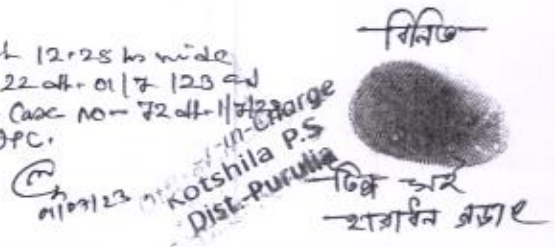 12.25 hrs vide
22 dt. 01/7/23 and
Case no- 72 dt. 1/7/23
IPC.
01/07/23
-in-Charge
Kotshila P.S
Dist.-Purulia
বিনিত
টিপ সই
হারাধন